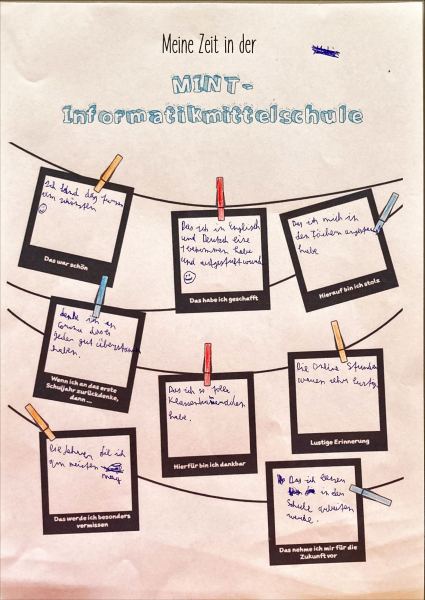 Meine Zeit in der
MINT-
Informatikmittelschule
Ich fand das
am schönsten
Das war schön
Das ich in Englisch
und Deutsch eine
1 bekommen habe
und aufgestuft wurde
Das habe ich geschafft
Das ich mich in
den Fächern angestrengt
habe
Hierauf bin ich stolz
denke ich an
Corona das
jeder gut überstanden
haben.
Wenn ich an das erste
Schuljahr zurückdenke,
dann ...
Das ich so tolle
Klassen
habe.
Hierfür bin ich dankbar
Die Online Stunden
waren sehr lustig
Lustige Erinnerung
Die Lehrer
am meisten
Das werde ich besonders
vermissen
Das ich besser
in der
Schule
werde.
Das nehme ich mir für die
Zukunft vor